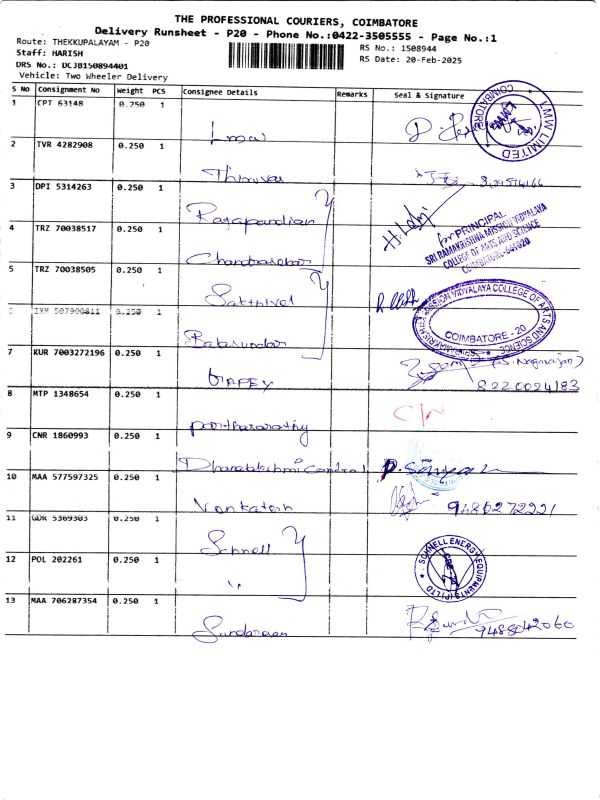 THE PROFESSIONAL COURIERS, COIMBATORE
Delivery Runsheet - P20 - Phone No.:0422-3505555 - Page No.:1
Route: THEKKUPALAYAM - P20
Staff: HARISH
DRS No.: DCJB150894401
Vehicle: Two Wheeler Delivery
RS No.: 1508944
RS Date: 20-Feb-2025
S No Consignment No Weight PCS Consignee Details Remarks Seal & Signature
1 CPT 63148 0.250 1
LMW LIMITED COIMBATORE
2 TVR 4282908 0.250 1
3 DPI 5314263 0.250 1 Ragapandian
for PRINCIPAL
SRI RAMAKRISHNA MISSION VIDYALAYA
COLLEGE OF ARTS AND SCIENCE
COIMBATORE-641020
4 TRZ 70038517 0.250 1 Chandrasekar
5 TRZ 70038505 0.250 1 Sakthivel
6 IXM 507900811 0.250 1 Balasundar
SRI RAMAKRISHNA MISSION VIDYALAYA COLLEGE OF ARTS AND SCIENCE
COIMBATORE - 20
7 KUR 7003272196 0.250 1 (S. Nagarajan)
8220024183
8 MTP 1348654 0.250 1 Parthasarathy
9 CNR 1860993 0.250 1 Dhanalakshmi
10 MAA 577597325 0.250 1 Venkatesh 9486272221
11 GDR 5369303 0.250 1 Schnell
12 POL 202261 0.250 1 "
SCHNELL ENERGY EQUIPMENTS (P) LTD
13 MAA 706287354 0.250 1 Sundaram 9488042060